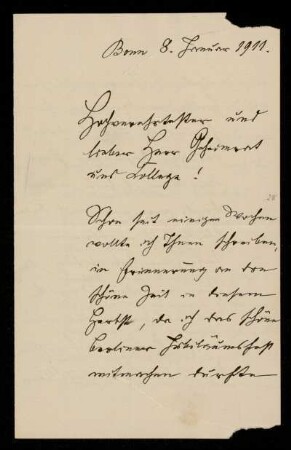 Bonn 8. Januar 1911.
Hochverehrtester und
lieber Herr Geheimrat
und College!
Schon seit einigen Wochen
wollte ich Ihnen schreiben,
in Erinnerung an die
schöne Zeit in diesem
Herbst, da ich das schöne
Berliner Jubiläumsfest
mitmachen durfte